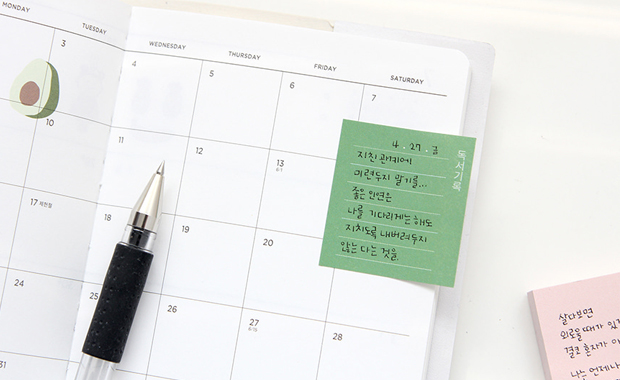 MONDAY
TUESDAY
WEDNESDAY
THURSDAY
FRIDAY
SATURDAY
3
4
5
6
7
10
11
12
13
17 제헌절
18
19
20
24
25
26
27
28
31
독서기록
4. 27. 금
지친 관계에
미련두지 말기를...
좋은 인연은
나를 기다리게는 해도
지치도록 내버려두지
않는 다는 것을.
살다보면
외로울때가 있
결코 혼자가 아
나는 언제나